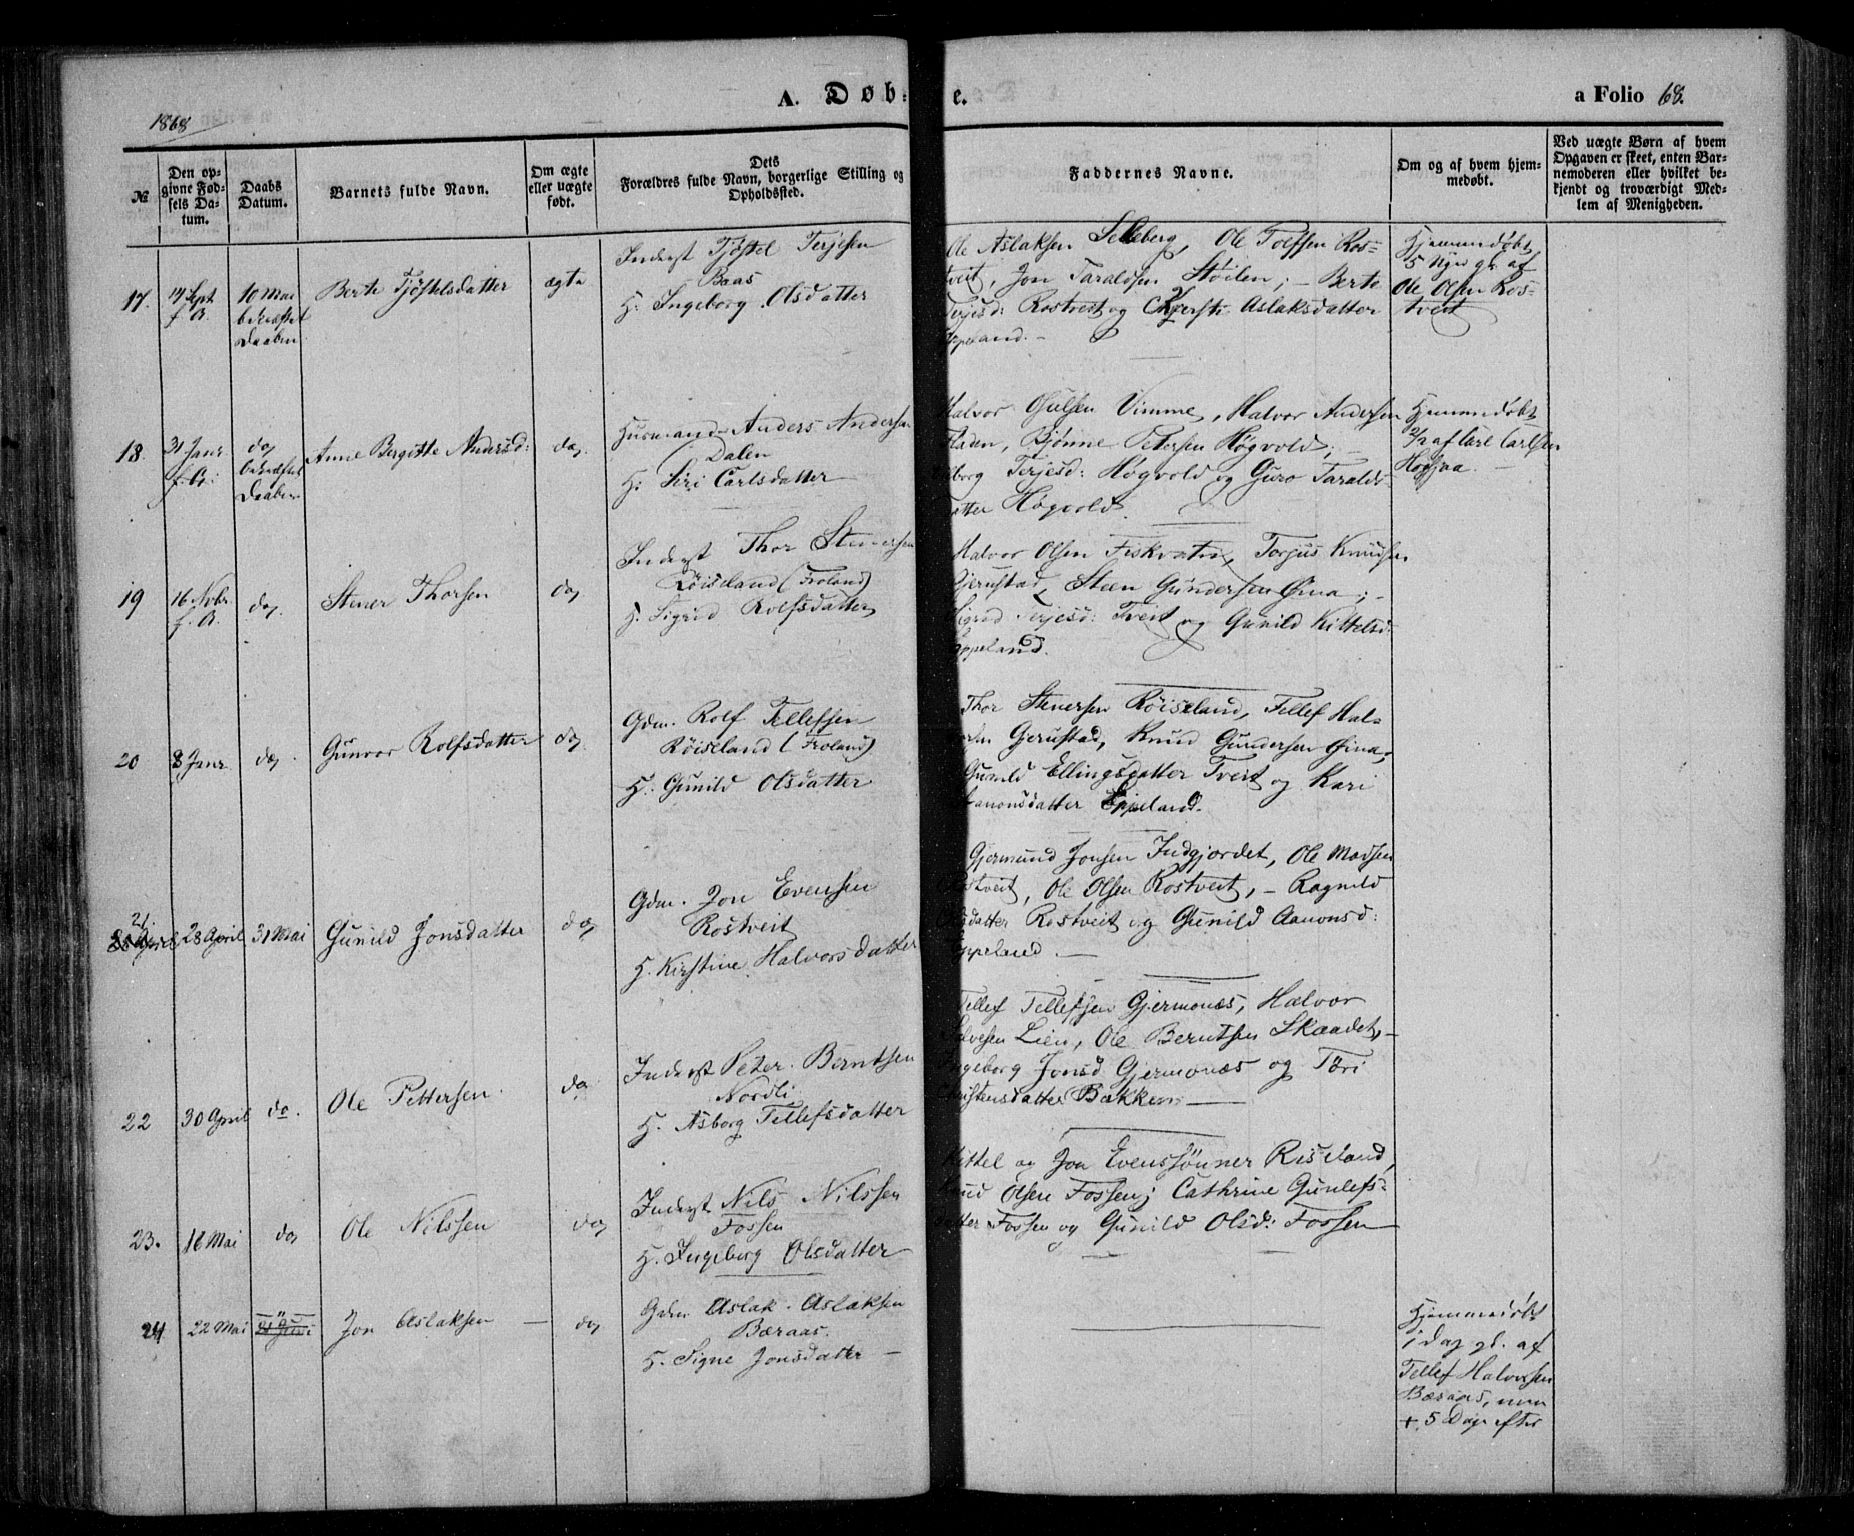 A. Døb- e.
a Folio 68.
1868
№
Den op-
givne Fød-
sels Da-
tum.
Daabs
Datum.
Barnets fulde Navn.
Om ægte
eller uægte
født.
Dets
Forældres fulde Navn, borgerlige Stilling og
Opholdssted.
Faddernes Navne.
Om og af hvem hjem-
medøbt.
Ved uægte Børn af hvem
Opgaven er skeet, enten Bar-
nemoderen eller hvilket be-
kjendt og troværdigt Med-
lem af Menigheden.
17.
Sept
f. A.
10 Mai
bekræftet
Daaben
Berte Tjøstelsdatter
ægte
Inderst Tjøstel Terjesen
Baas
H. Ingeborg Olsdatter
Ole Aslaksen Selleberg, Ole Tolfsen Ros-
tveit, Jon Taraldsen Støilen; – Berte
Terjesd: Rostveit og Aslaksdatter
Eppeland. –
Hjemmedøbt
5 gl. af
Ole Olsen Ros-
tveit
18
31 Janr
f. A:
do
bekræftet
Daaben
Anne Bergitte Andersd:
do
Husmand Anders Andersen
Dalen
H: Siri Carlsdatter
Halvor Osulsen Vimme, Halvor Andersen
Bjønne Petersen Høgvold; –
Terjesd: Høgvold og Guro Taralds-
datter Høgvold.
Hjemmedøbt
af Carl Carlsen
19
16 Novbr
f. A.
do
Stener Thorsen
do
Inderst Thor Stenersen
Røiseland (Froland)
H. Sigrid Rolfsdatter
Halvor Olsen Fiskvatn, Torjus Knudsen
Gjerustad, Steen Gundersen Øina; –
Sigrid Terjesd: Tveit og Gunild Kittelsd:
Eppeland.
20
8 Janr
do
Gunvor Rolfsdatter
do
Gdm. Rolf Tellefsen
Røiseland (Froland)
H: Gunild Olsdatter
Thor Stenersen Røiseland, Tellef Hal-
Gjerustad, Knud Gundersen Øina,
Gunild Ellingsdatter Tveit og Kari
Aanonsdatter Eppeland.
21.
28 April
31 Mai
Gunild Jonsdatter
do
Gdm. Jon Evensen
Rostveit
H. Kirstine Halvorsdatter
Gjermund Jonsen Indgjordet, Ole Madsen
Rostveit, Ole Olsen Rostveit, – Ragnild
Olsdatter Rostveit og Gunild Aanonsd:
Eppeland. –
22
30 April
do.
Ole Pettersen
do
Inderst Peter Berntsen
Nordli
H. Asborg Tellefsdatter
Tellef Tellefsen Gjermonæs, Halvor
Lien, Ole Berntsen Skaadet, –
Ingeborg Jonsd Gjermonæs og Tori
Christensdatter Bakken –
23.
16 Mai
do
Ole Nilssen
do
Inderst Nils Nilssen
Fossen
H. Ingeborg Olsdatter
Kittel og Jon Evenssønner Riseland,
Knud Olsen Fossen; Cathrine Gunlefs-
datter Fossen og Gunild Olsd: Fossen
24
22 Mai
Jon Aslaksen –
do
Gdm Aslak Aslaksen
Bæraas.
H. Signe Jonsdatter –
Hjemmedøbt
1 Dag gl. af
Tellef Halvorsen
Bæraas, men
+ 5 Dage efter